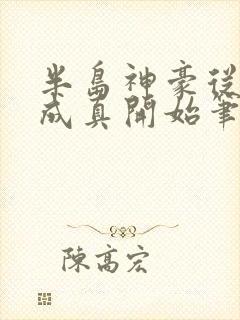 半島神豪從
成真開始筆
陳高宏